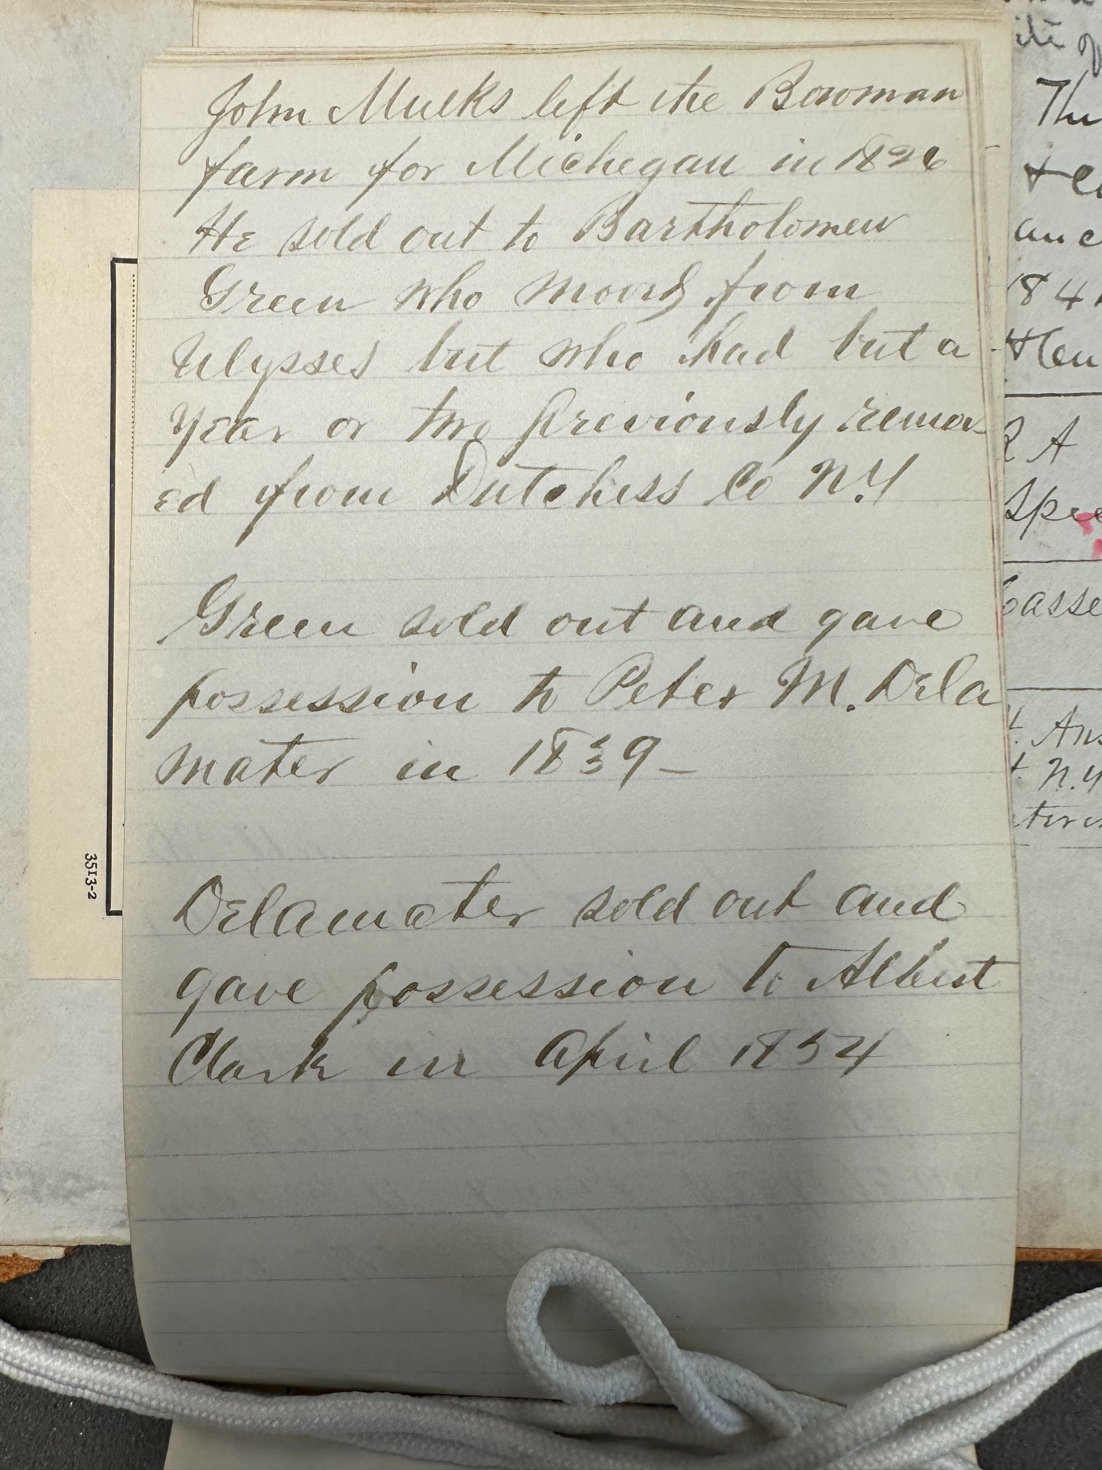 John Mulks left the Bowman
farm for Michegan in 1826
He sold out to Bartholomew
Green who moved from
Ulysses but who had but a
year or two previously remov
ed from Dutchess Co N.Y
Green sold out and gave
possession to Peter M. Dela
mater in 1839-
Delamater sold out and
gave possession to Albert
Clark in April 1854
3513-2
The
184
Hen
R A
Spe
Casse
N.Y